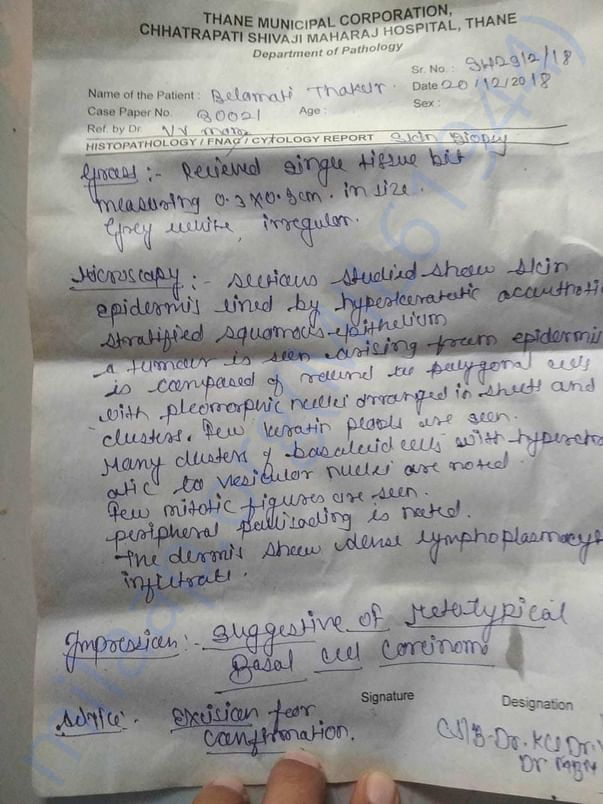 THANE MUNICIPAL CORPORATION,
CHHATRAPATI SHIVAJI MAHARAJ HOSPITAL, THANE
Department of Pathology
Sr. No. : SH2912/18
Name of the Patient : Belamati Thakur. Date 20/12/2018
Case Paper No. 30021 Age : Sex :
Ref. by Dr. VV
HISTOPATHOLOGY / FNAC / CYTOLOGY REPORT Skin Biopsy
Gross :- Recieved single tissue bit
measuring 0.3x0.3cm. in size.
Grey white, irregular.
Microscopy :- sections studied show skin
epidermis lined by hyperkeratotic acanthoti
stratified squamous epithelium
a tumour is seen arising from epidermis
is composed of round to polygonal cells
with pleomorphic nuclei arranged in sheets and
clusters. Few keratin pearls are seen.
Many clusters of basaloid cells with hyperchro
atic to vesicular nuclei are noted.
Few mitotic figures are seen.
peripheral pallisading is noted.
The dermis show dense lymphoplasmacyt
infiltrate.
Impression :- Suggestive of Metatypical
Basal cell carcinoma
Signature Designation
Advice - Excision for
confirmation.
Dr. KCU Dr.
Dr